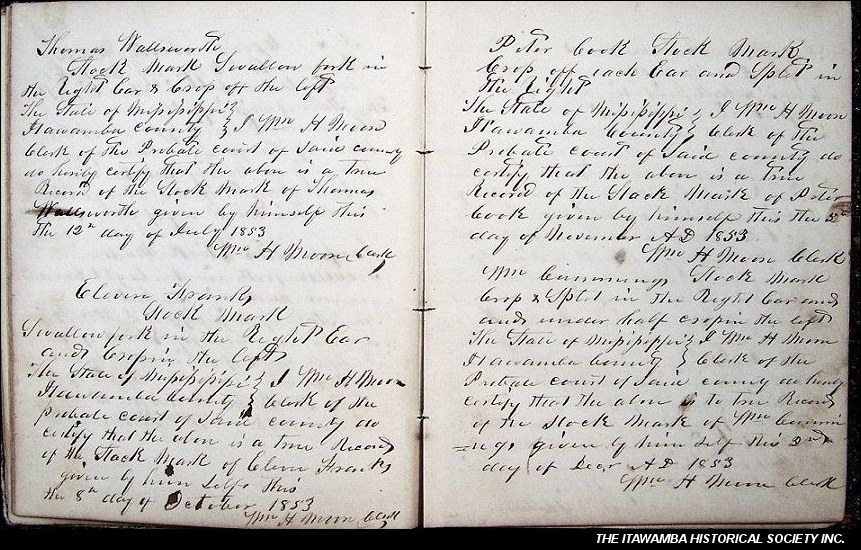 Thomas Wallsworth
Stock Mark Swallow fork in
the Right Ear & Crop off the left
The State of Mississippi }
Itawamba County } I Wm H Moon
Clerk of the Probate court of Said county
do herby certify that the above is a true
Record of the Stock Mark of Thomas
Wallsworth given by himself this
the 12th day of July 1853
Wm H Moon Clerk
Eleven Franks
Stock Mark
Swallow fork in the Right Ear
and Crop in the left
The State of Mississippi }
Itawamba County } I Wm H Moon
Clerk of the
Probate court of Said county do
certify that the above is a true Record
of the Stock Mark of Eleven Franks
given by him Self this
the 8th day of October 1853
Wm H Moon Clerk
Peter Cook Stock Mark
Crop off each Ear and Split in
the Right
The State of Mississippi } I Wm H Moon
Itawamba County } Clerk of the
Probate court of Said county do
certify that the above is a true
Record of the Stock Mark of Peter
Cook given by himself this the
day of November AD 1853
Wm H Moon Clerk
Wm Cummings Stock Mark
Crop & Split in the Right Ear and
and under half crop in the left
The State of Mississippi } I Wm H Moon
Itawamba County } Clerk of the
Probate court of Said county do herby
certify that the above is to true Record
of the Stock Mark of Wm Cummin
=ngs given by himself this 2nd
day of Decr AD 1853
Wm H Moon Clerk
THE ITAWAMBA HISTORICAL SOCIETY INC.